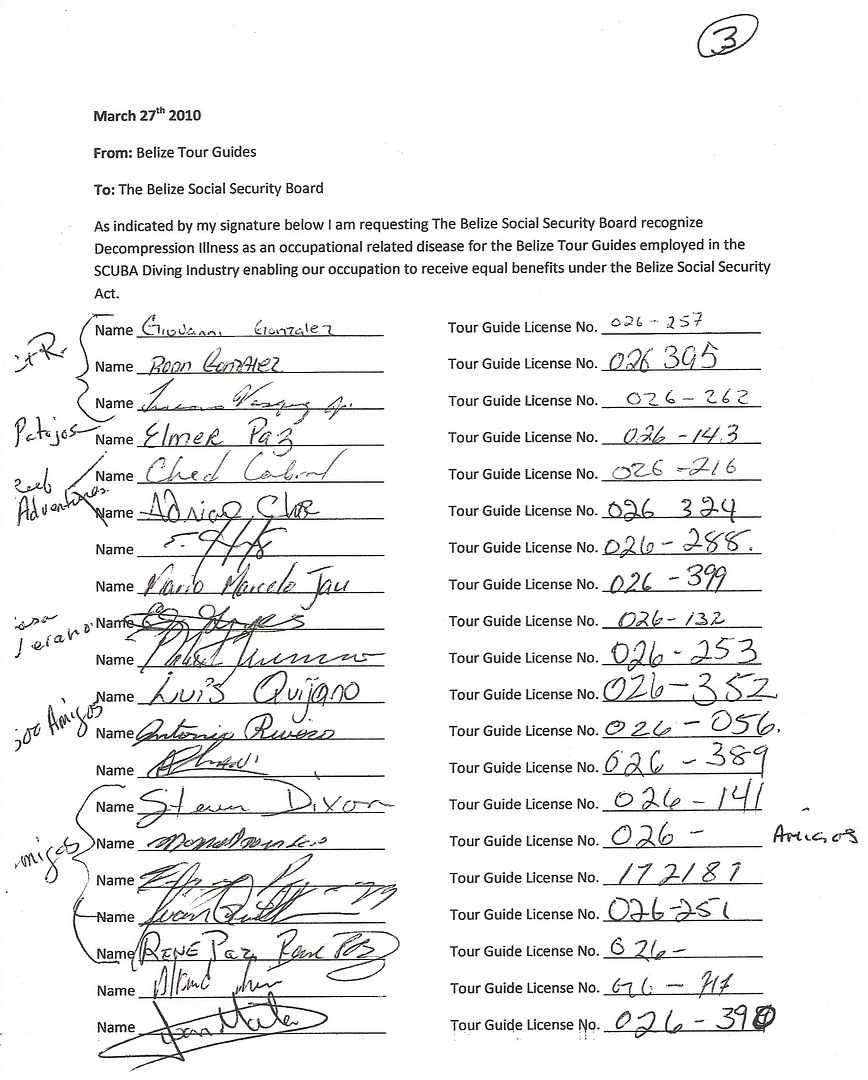 3
March 27th 2010
From: Belize Tour Guides
To: The Belize Social Security Board
As indicated by my signature below I am requesting The Belize Social Security Board recognize
Decompression Illness as an occupational related disease for the Belize Tour Guides employed in the
SCUBA Diving Industry enabling our occupation to receive equal benefits under the Belize Social Security
Act.
Name Giovanni Gonzalez Tour Guide License No. 026-257
Name Roan Gonzalez Tour Guide License No. 026 395
Name Vasquez Tour Guide License No. 026-262
Patojos Name Elmer Paz Tour Guide License No. 026-143
Name Ched Tour Guide License No. 026-216
Adventures Name Adrian Tour Guide License No. 026 324
Name Tour Guide License No. 026-288.
Name Mario Marcelo Jau Tour Guide License No. 026-399
Name Tour Guide License No. 026-132
Name Tour Guide License No. 026-253
Name Luis Quijano Tour Guide License No. 026-352
Amigos Name Antonio Rivero Tour Guide License No. 026-056.
Name Tour Guide License No. 026-389
Name Steven Dixon Tour Guide License No. 026-141
Name Tour Guide License No. 026- Amigos
migos Name Tour Guide License No. 172187
Name Ivan Tour Guide License No. 026-251
Name RENE Paz Rene Paz Tour Guide License No. 026-
Name Tour Guide License No.
Name Tour Guide License No. 026-390